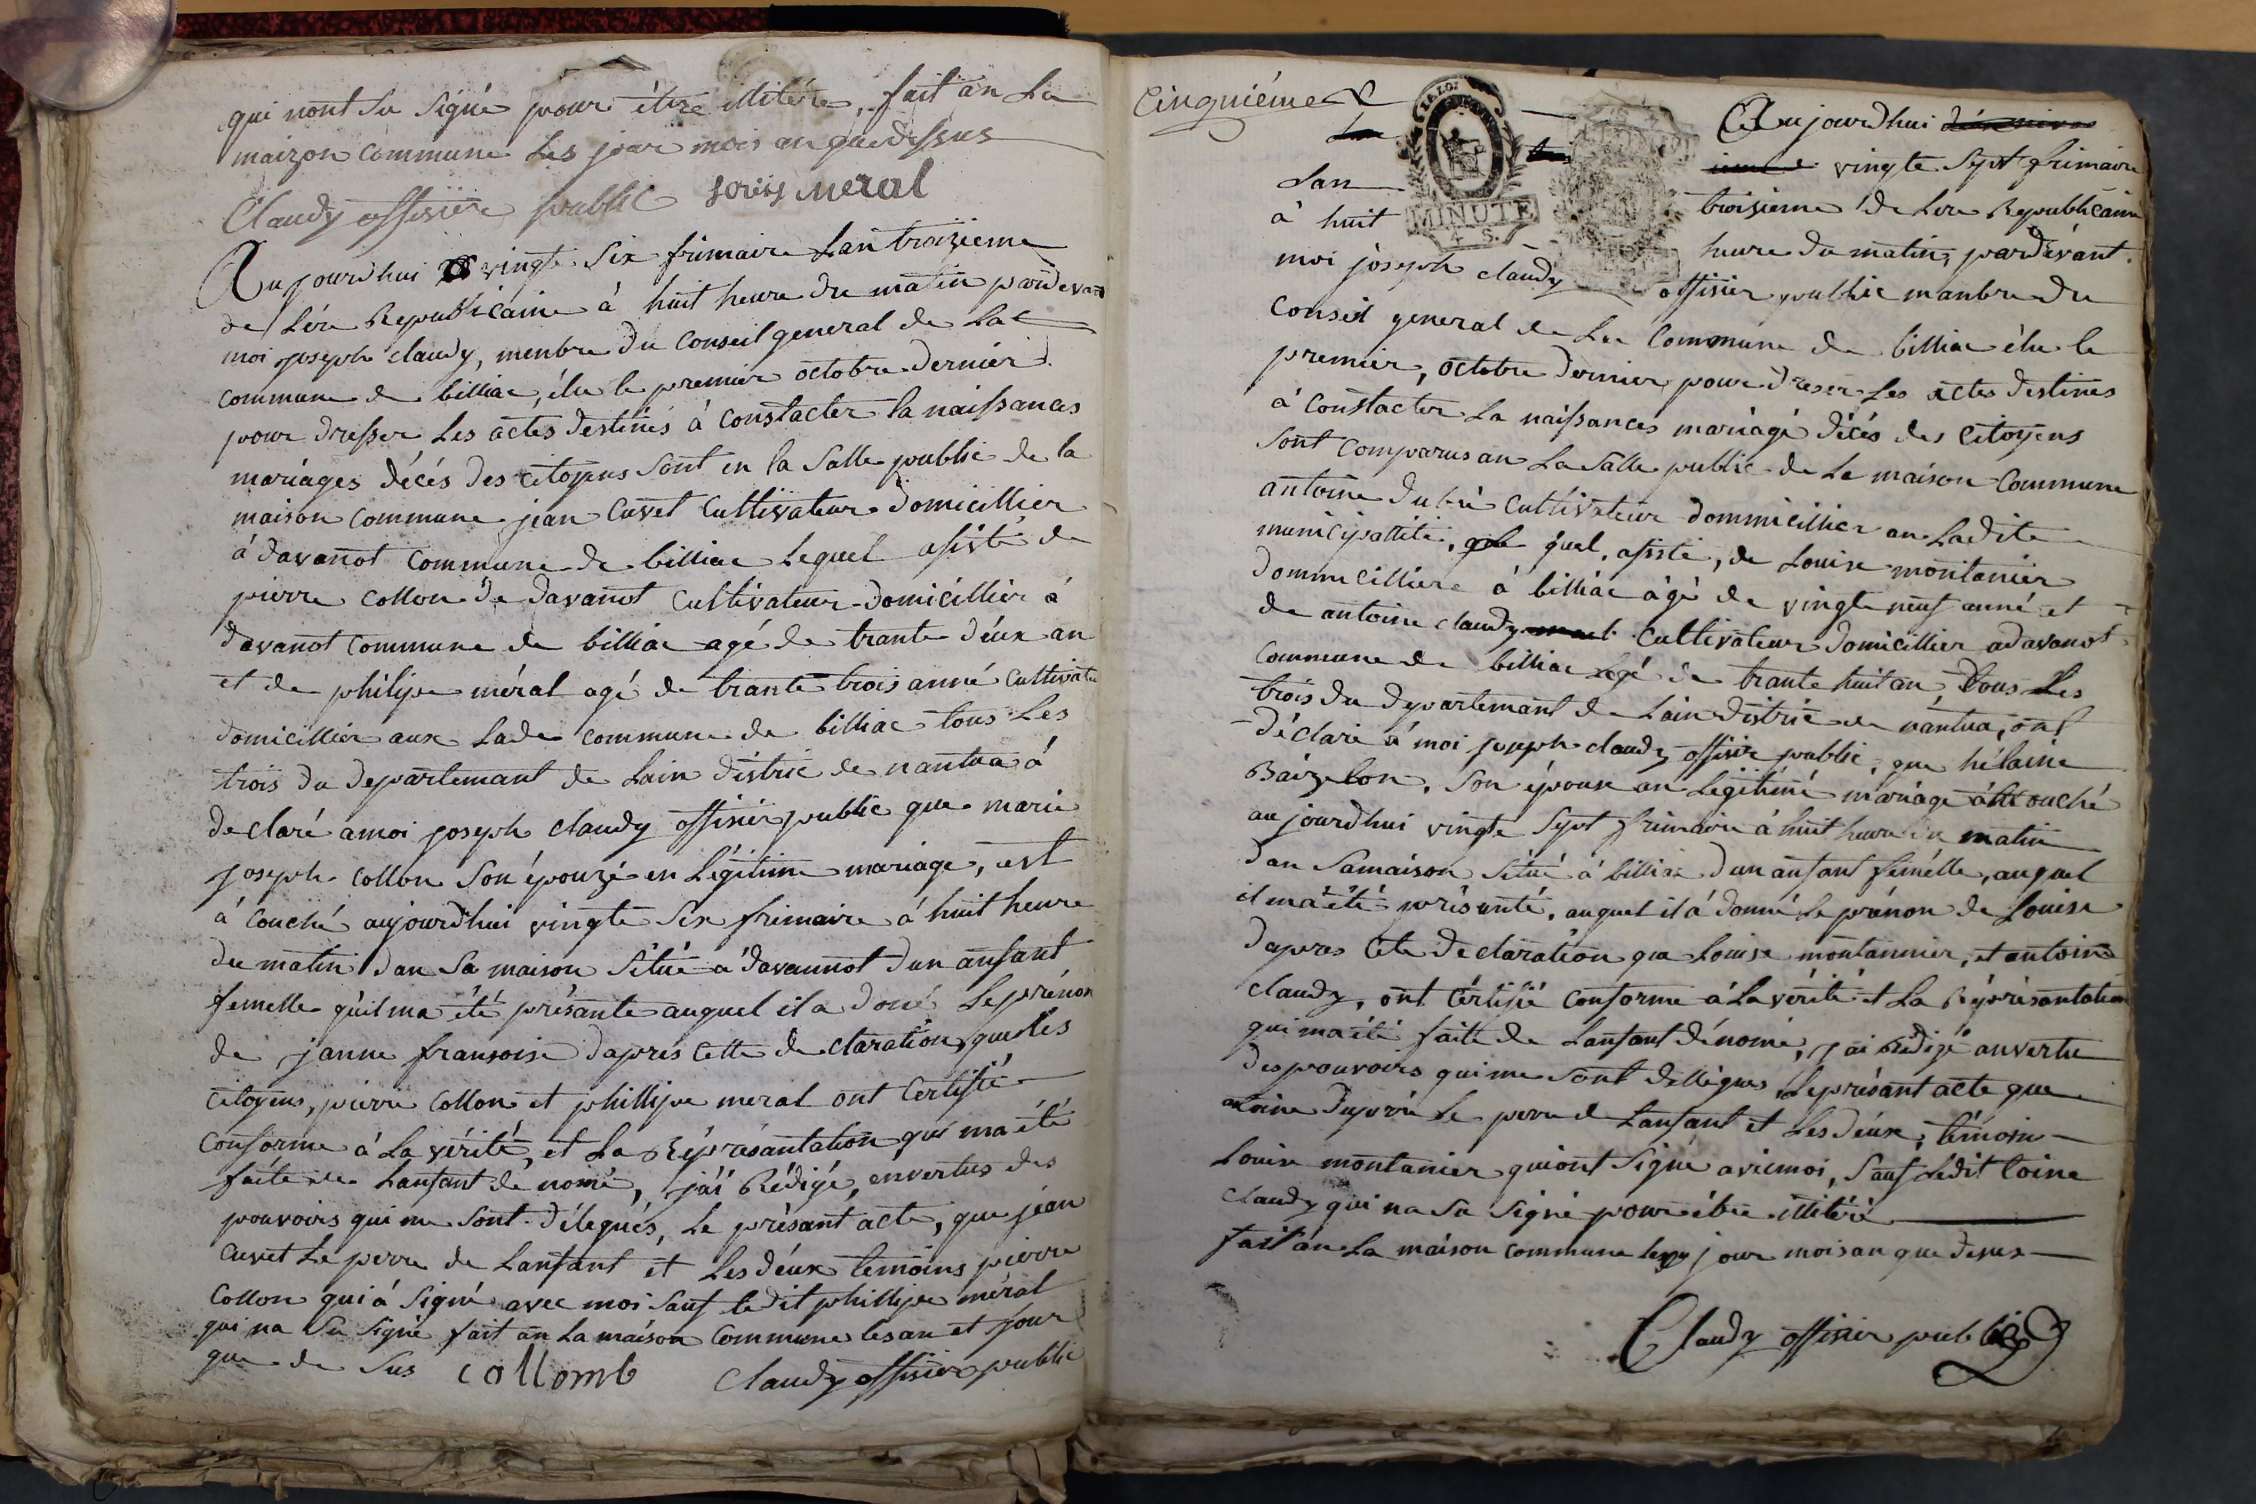 qui nont su signé pour être illitére, fait an La
maizon commune Les jour mois an quedessus
Claudy offisier public Loüis Meral
Aujourdhui vingte six frimaire Lan troizieme
de Lére Republicaine à huit heure du matin pardevan
moi joseph claudy, menbre du Conseil general de La
commune de billiac, élu le premier octobre dernier
pour dresser Les actes destinés à constacter la naissances
mariages décés des citoyens sont en la Salle public de la
maison commune jean Cuvet Cultivateur domicillier
à davanot commune de billiac Lequel assisté de
pierre collon de davanot Cultivateur domicillier à
davanot commune de billiac agé de trante déux an
et de philipe méral agé de trante trois anné Cultivate
domicillier aux Lade commune de billiac tous Les
trois du departemant de Lain distric de nantua à
declaré a moi joseph claudy offisier public que marie
joseph collon son épouzé en Légitime mariage, est
à couché aujourdhui vingte six frimaire à huit heure
du matin dan sa maison situé à davannot dun anfant
femelle quil ma été présante auquel il a doné le prénon
de janne fransoise dapres cette declaration, que Les
citoyens, pierre collon et phillipe meral ont certifié
conforme à La vérité, et La Réprésantation qui ma été
faite de Lanfant denomé, j'ai Rédigé, envertus des
pouvoirs qui me sont délegués, Le présant acte, que jean
cuvet Le perre de Lanfant et Les déux temoins pierre
Collon qui à signé avec moi sauf ledit phillipe méral
qui na su signé fait an La maison commune les an et jour
que de sus collomb Claudy offisier public
Cinquiéme
LA LOI
MINUTE
4 S.
Aujourdhui
vingte sept frimaire
Lan troisieme de Lere Republicaine
à huit heure du matin, pardévant
moi joséph claudy offisier public manbre du
Conseil general de La Commune de billiac élu le
premier, octobre dernier pour dreser Les actes destinés
à constacter La naissances mariagé décés des citoyens
sont comparus an La Salle public de La maison commune
antoine dupré cultivateur dommicillier an Ladite
municipallité, quel, assisté, de Louise montanier
dommicilliere à billiac âgé de vingte neuf anné et
de antoine claudy Cultivateur domicillier adavanot
commune de billiac agé de trante huit an, tous Les
trois du departemant de Lain distric de nantua, ont
déclaré à moi joseph claudy offisier public, que hélaine
Baizelon, son épouse an Légitimé mariage à couché
aujourdhui vingte sept frimaire à huit heure du matin
dan sa maison situé à billiac dun anfant femélle, auquel
il ma été présenté, auquel il à donné le prénon de Louise
dapras cete declaration que Louise montannier, et antoine
claudy, ont cértifié conforme à La vérité et La Réprésantation
qui ma été faite de Lanfant dénomé, j'ai Rédigé anvertu
des pouvoirs qui me sont dellégues, Le présant acte que
antoine dupré Le perre de Lanfant et Les déux, témoin
Louise montanier qui ont signé avec moi, sauf Ledit toine
claudy qui na su signé pour étre illitéré
fait an La maison commune les jour mois an que desus
Claudy offisier public